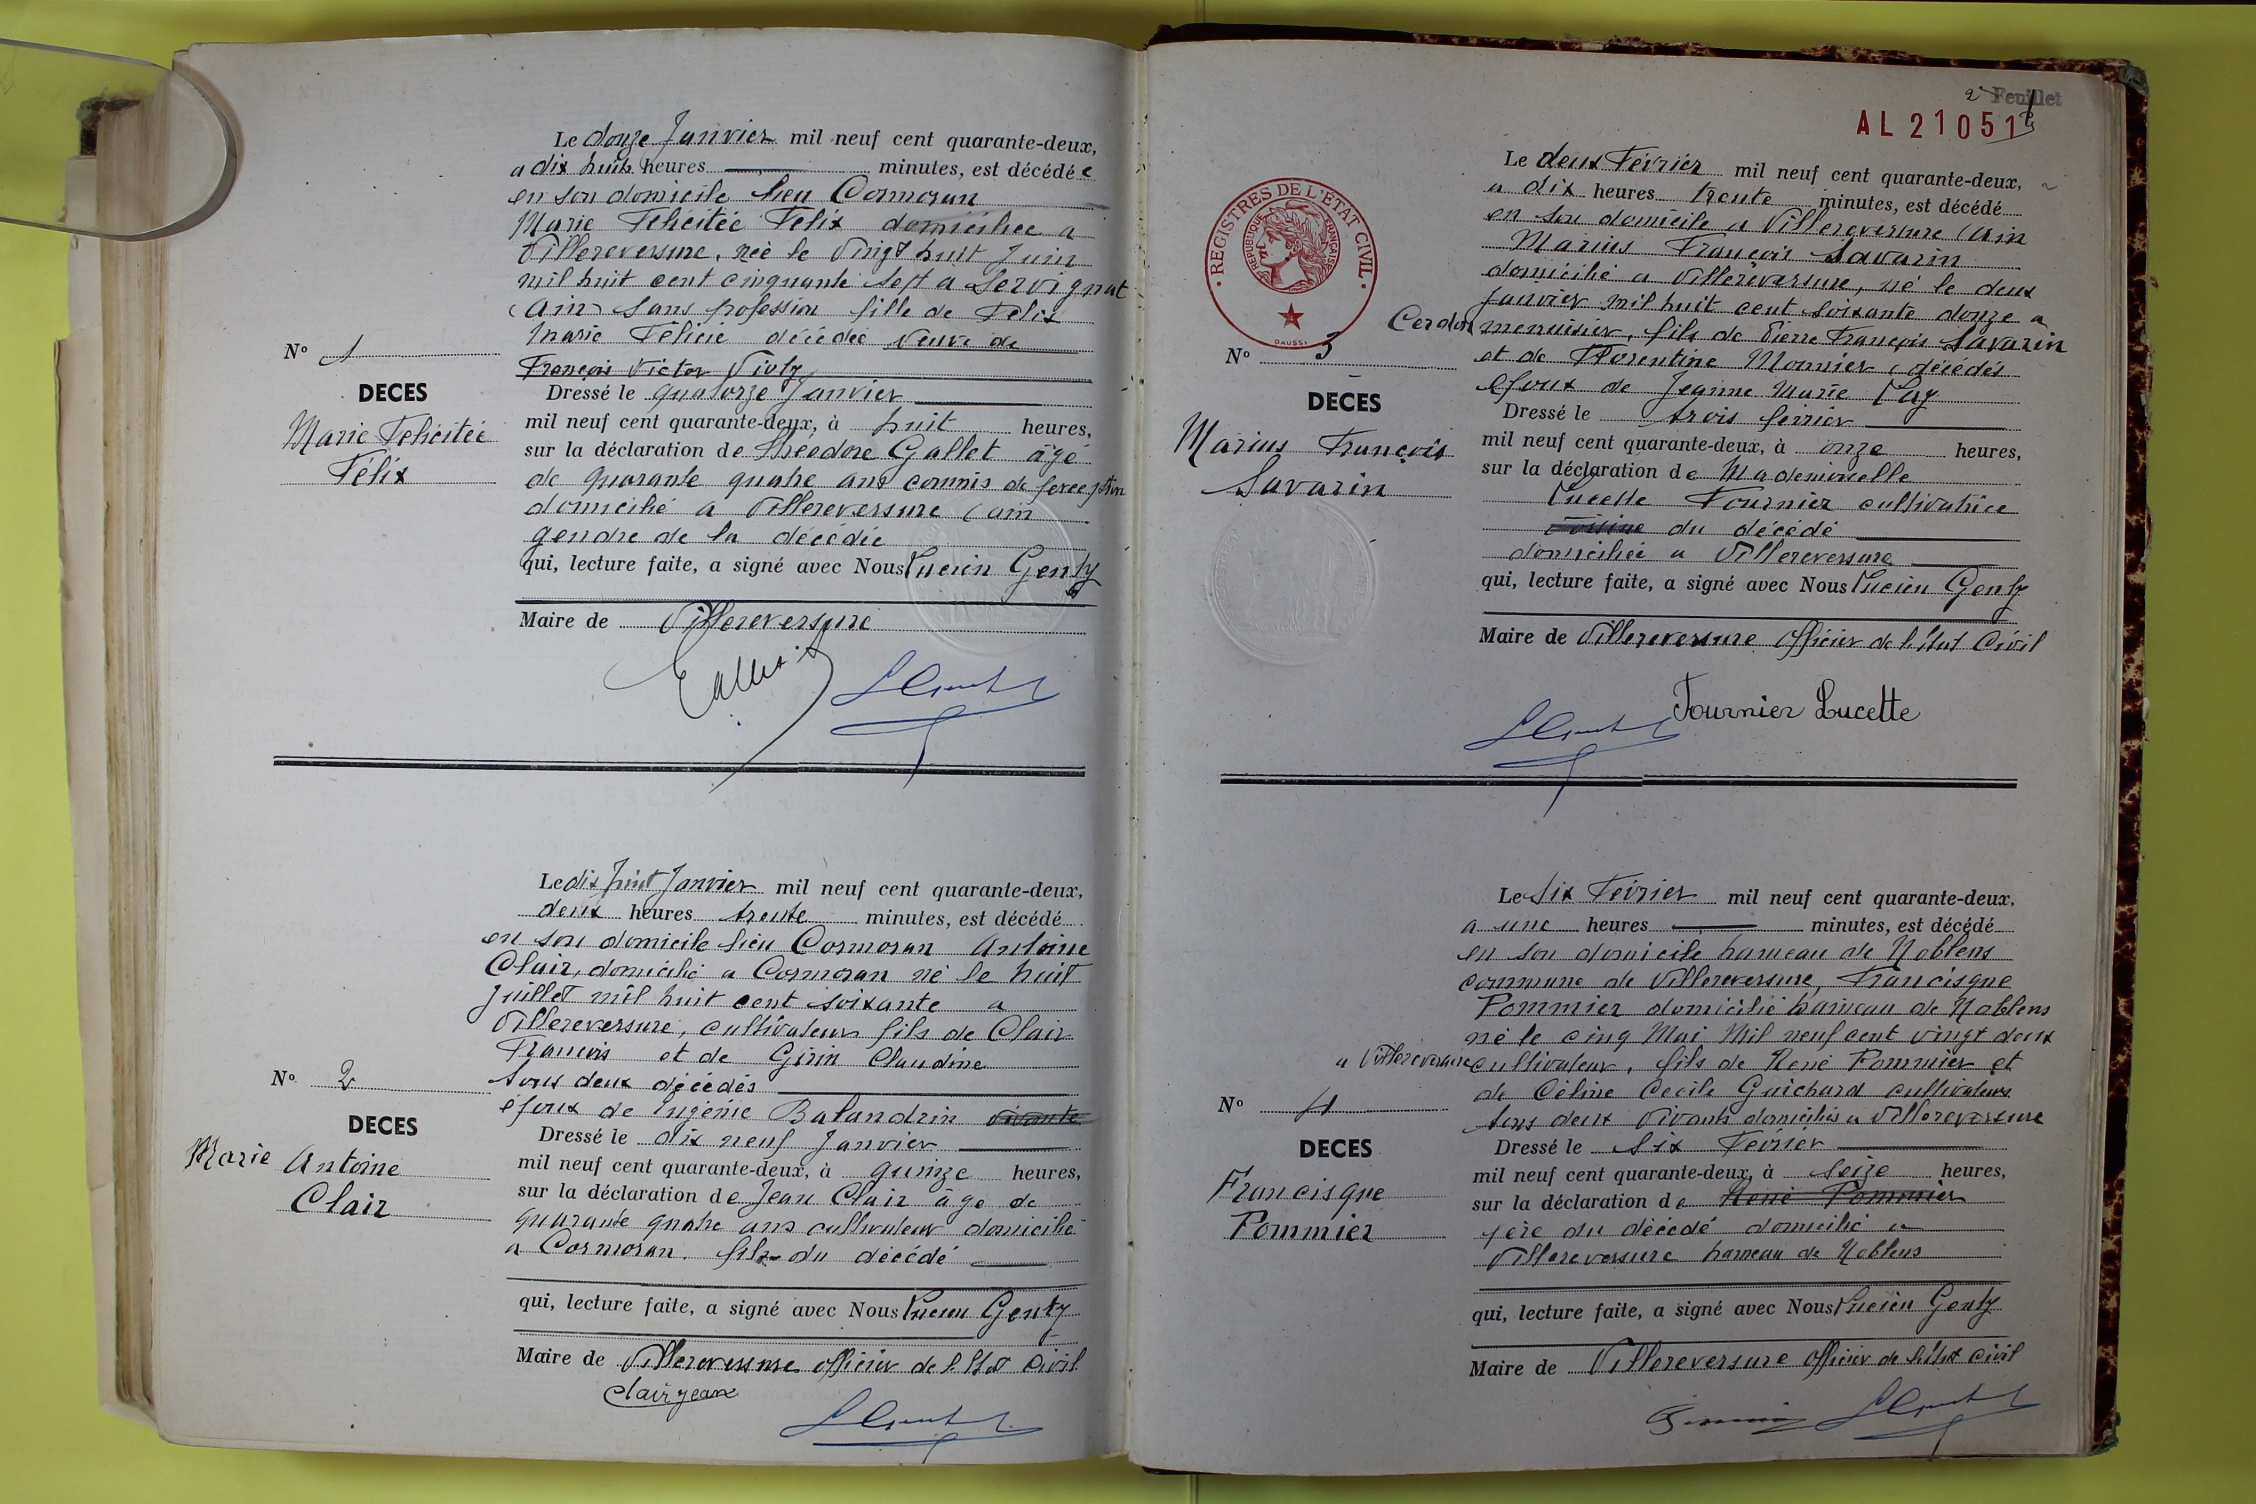 Le douze Janvier mil neuf cent quarante-deux,
a dix huit heures minutes, est décédée
en son domicile lieu Cormoran
Marie Félicitée Félix domiciliée a
Villereversure, née le vingt huit Juin
mil huit cent cinquante sept a Servignat
(Ain) sans profession fille de Félix
Marie Félicie décédée veuve de
François Victor
Nº 1
DECES
Marie Félicitée
Félix
Dressé le quatorze Janvier
mil neuf cent quarante-deux, à huit heures,
sur la déclaration de Théodore Gallet âgé
de quarante quatre ans commis de perception
domicilié a Villereversure (ain
gendre de la décédée
qui, lecture faite, a signé avec Nous Lucien Genty
Maire de Villereversure
Gallet
Le dix huit Janvier mil neuf cent quarante-deux,
deux heures trente minutes, est décédé
en son domicile lieu Cormoran Antoine
Clair, domicilié a Cormoran né le huit
Juillet mil huit cent soixante a
Villereversure, cultivateur fils de Clair
François et de Girin Claudine
tous deux décédés
époux de Eugénie Balandrin vivante
Nº 2
DECES
Marie Antoine
Clair
Dressé le dix neuf Janvier
mil neuf cent quarante-deux, à quinze heures,
sur la déclaration de Jean Clair âge de
quarante quatre ans cultivateur domicilié
a Cormoran. fils du décédé
qui, lecture faite, a signé avec Nous Lucien Genty
Maire de Villereversure officier de l'Etat Civil
Clair jean
2 Feuillet
AL 21051
REGISTRES DE L'ÉTAT CIVIL
RÉPUBLIQUE FRANÇAISE
DAUSSI
Le deux Février mil neuf cent quarante-deux,
a dix heures trente minutes, est décédé
en son domicile a Villereversure (Ain
Marius François Savarin
domicilié a Villereversure, né le deux
Janvier mil huit cent soixante douze a
Cerdon menuisier, fils de Pierre François Savarin
et de Florentine Monnier, décédés
époux de Jeanne Marie
Nº 3
DECES
Marius François
Savarin
Dressé le trois fevrier
mil neuf cent quarante-deux, à onze heures,
sur la déclaration de Mademoiselle
Lucette Fournier cultivatrice
voisine du décédé
domiciliée a Villereversure
qui, lecture faite, a signé avec Nous Lucien Genty
Maire de Villereversure officier de l'état Civil
Fournier Lucette
Le Six Février mil neuf cent quarante-deux,
a une heures minutes, est décédé
en son domicile hameau de Noblens
commune de Villereversure, Francisque
Pommier domicilié hameau de Noblens
né le cinq Mai Mil neuf cent vingt deux
a Villereversure cultivateur, fils de René Pommier et
de Céline Cecile Guichard cultivateurs
tous deux vivants domiciliés a Villereversure
Nº 4
DECES
Francisque
Pommier
Dressé le Six Février
mil neuf cent quarante-deux, à seize heures,
sur la déclaration de René Pommier
père du décédé domicilié a
Villereversure hameau de Noblens
qui, lecture faite, a signé avec Nous Lucien Genty
Maire de Villereversure officier de l'état civil